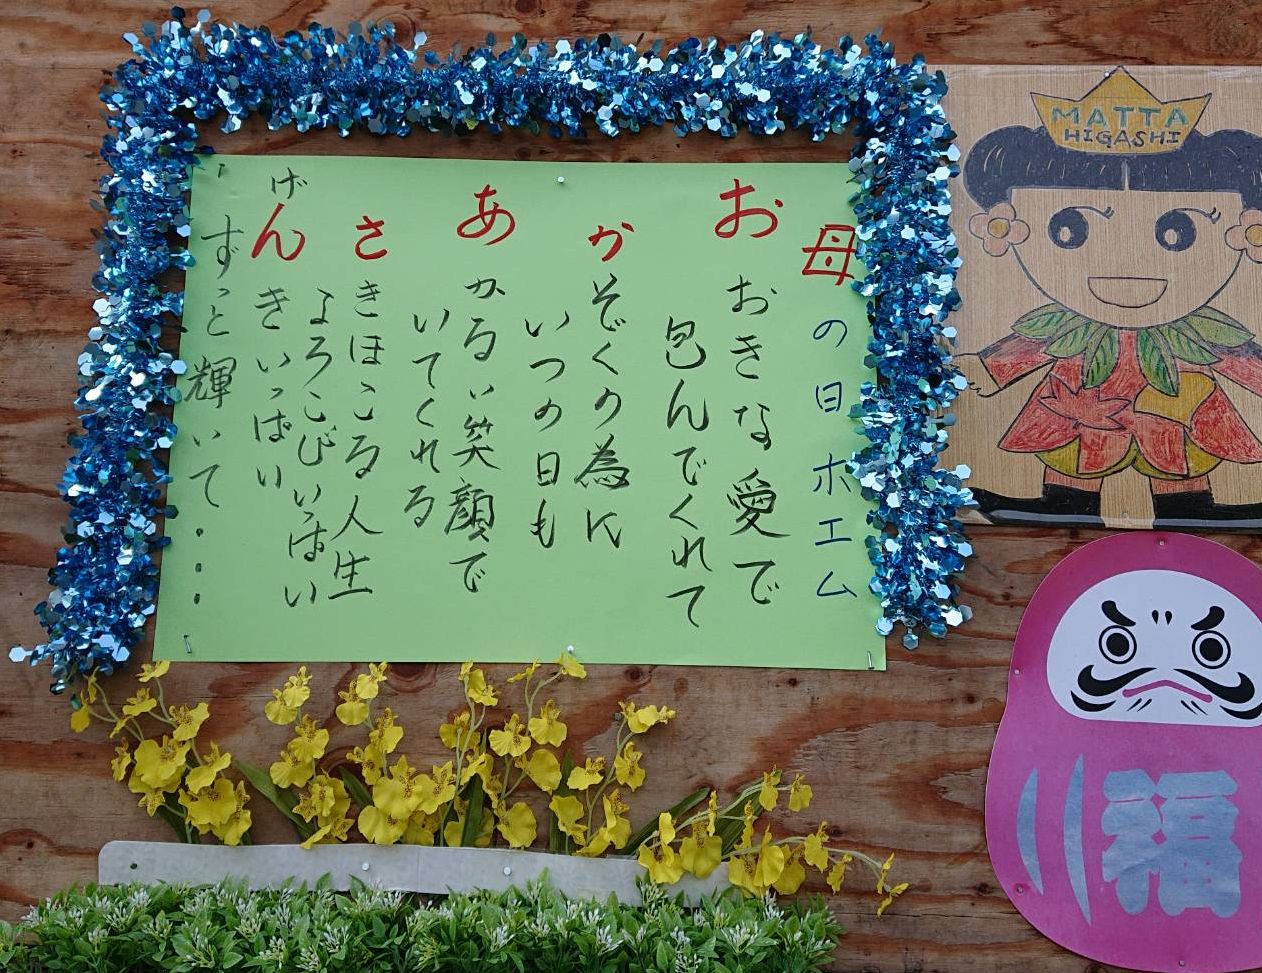 母の日ホエム
お おきな愛で
包んでくれて
か ぞくの為に
いつの日も
あ かるい笑顔で
いてくれる
さ きほこる人生
よろこびいっぱい
げん きいっぱい
ずっと輝いて・・・・
MATTA
HIGASHI
福